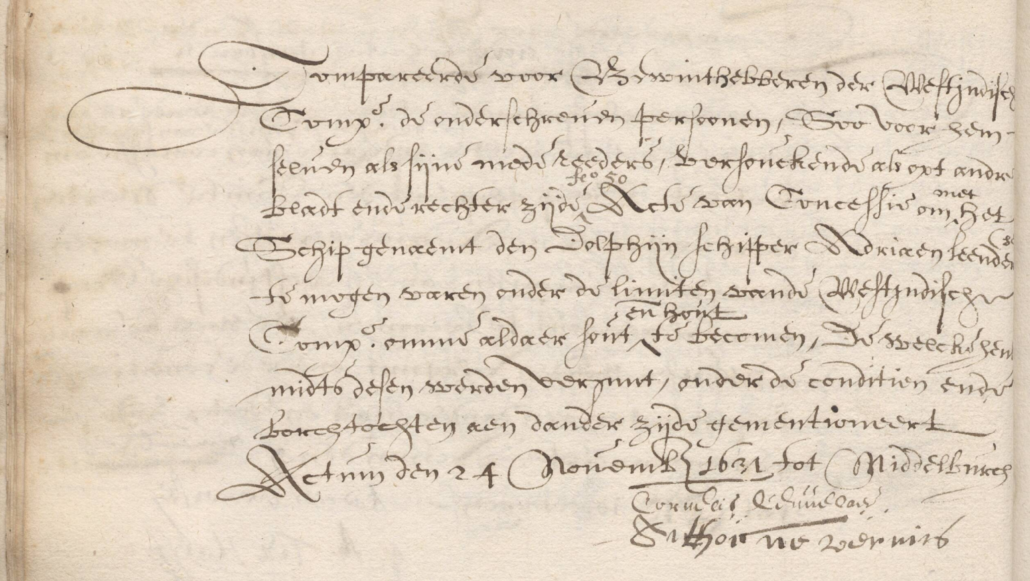 Compareerde voor Bewinthebberen der WestJndisch
Comp:e de onderschreven persoonen, Soo voor hem
selven als sijne mede reeders, versouckende als opt andre
fco 50
bladt ende rechter zijde, Acte van Concessie om met het
Schip genaemt den Dolphijn schipper Adriaen leender
te mogen varen onder de limiten vande WestJndische
en hout
Comp:e omme aldaer sout te becomen, De welcke hem
midts desen werden verjunt, onder de conditien ende
borchtochten aen dander zijde gementioneert
Actum den 24 Novemb 1631 tot Middelburch
Cornelis